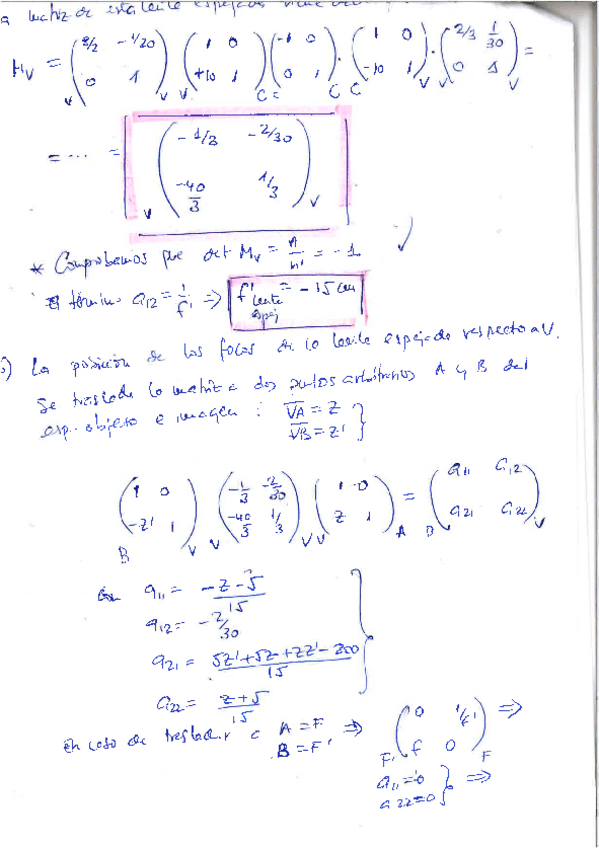 a matriz de esta lente espejada viene
M_V = (2/2 -1/20; 0 1)_V (1 0; +10 1)_C = (-1 0; 0 1)_C · (1 0; -10 1)_V · (2/3 1/30; 0 1)_V =
= ... = (-1/3 -2/30; -40/3 1/3)_V
* Comprobamos que det M_V = n/n' = -1 ✓
El término a12 = 1/f' => f' lente espej = -15 cm
b) La posición de los focos de la lente espejada respecto a V.
Se traslada la matriz a dos puntos arbitrarios A y B del
esp. objeto e imagen : VA = z
VB = z' }
(1 0; -z' 1)_V (-1/3 -2/30; -40/3 1/3)_V (1 0; z 1)_A = _B(a11 a12; a21 a22)_V
a11 = -z-5/15
a12 = -2/30
a21 = 5z'+5z+zz'-200/15
a22 = z+5/15
En caso de trasladar a A = F => (0 1/f'; f 0)_F =>
B = F'
a11 = 0
a22 = 0 } =>